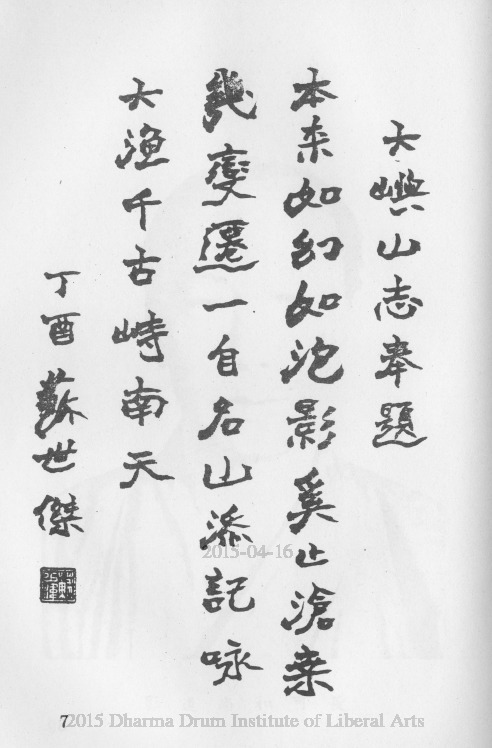 大嶼山志奉題
本来如幻如泡影奚止滄桒
幾變遷一自名山添記咏
大漁千古峙南天
丁酉蘇世傑
2015-04-16
7
2015 Dharma Drum Institute of Liberal Arts